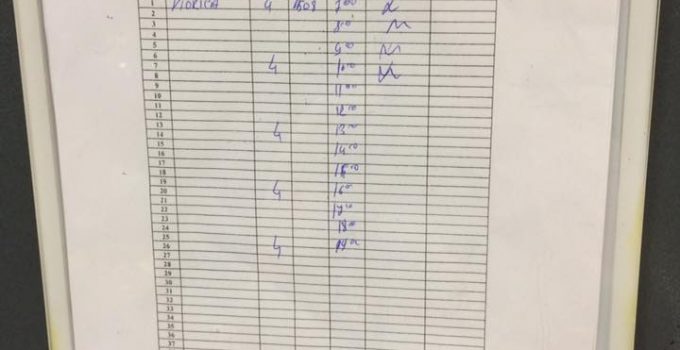 1 VIORICA 4 1508 7 00
2
3 8 00
4
5
6 9 00
7 4 10 00
8
9 11 00
10
11 12 00
12
13 4 13 00
14
15 14 00
16
17
18 15 00
19
20 4 16 00
21
22 17 00
23
24 18 00
25
26 4 19 00
27
28
29
30
31
32
33
34
35
36
37